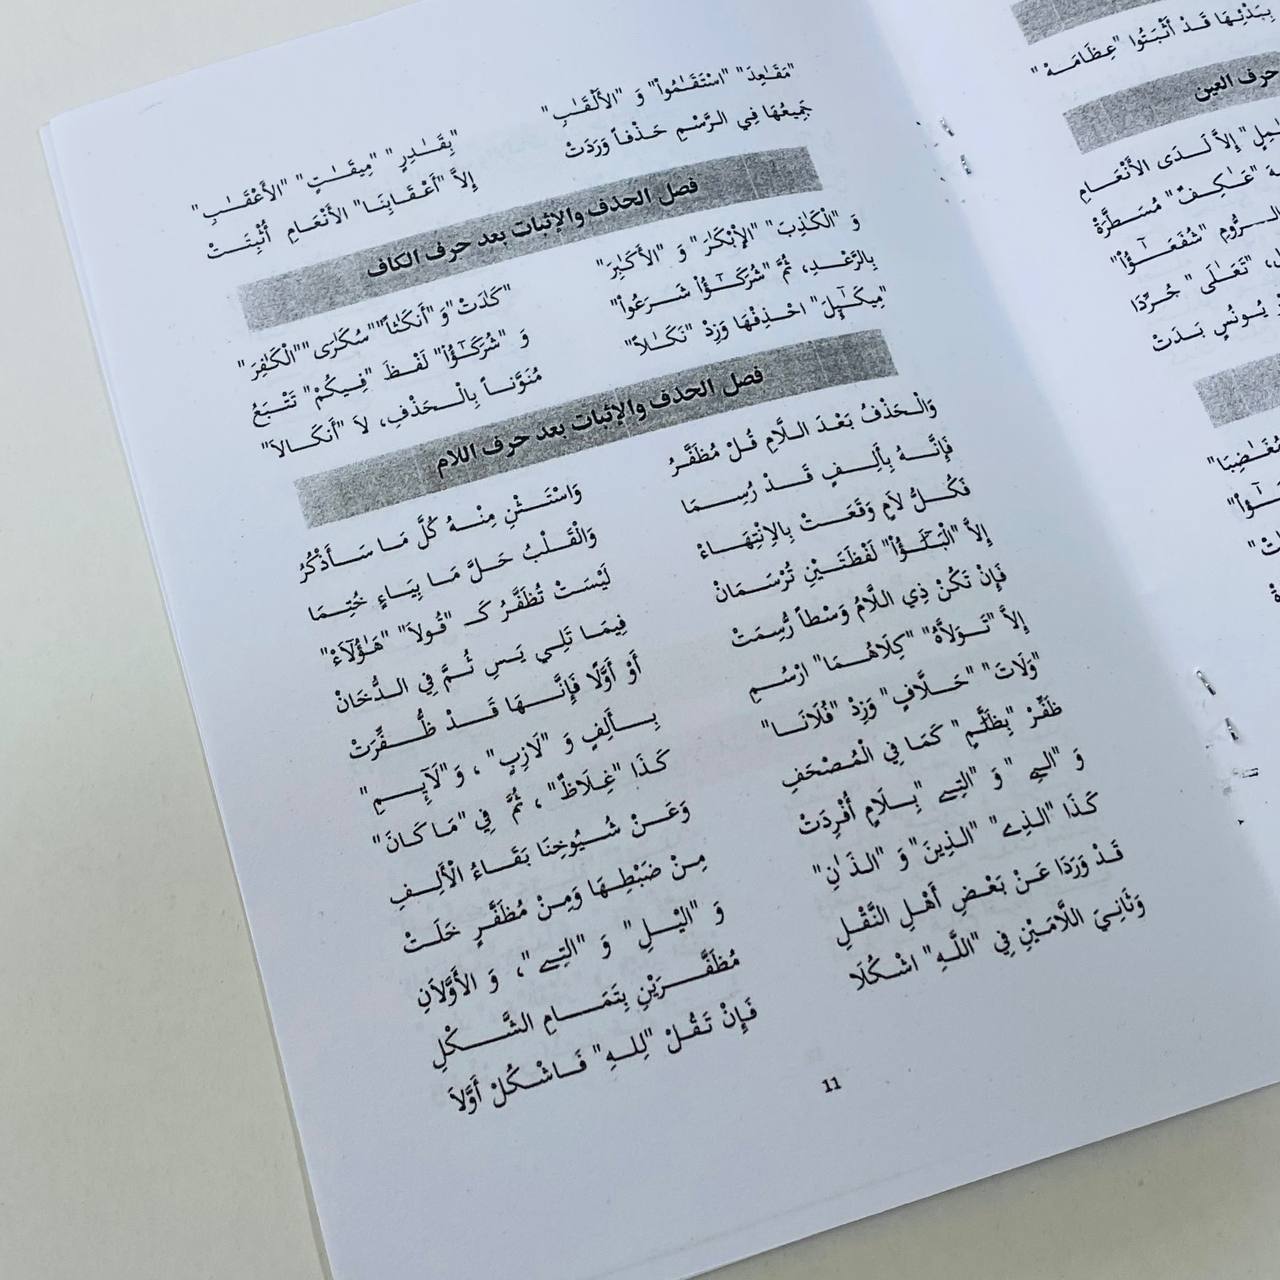 "مَقَٰعِدَ" "اسْتَقَٰمُواْ" وَ "الأَلْقَٰبِ" "بِقَٰدِرٍ" "مِيقَٰتٍ" "الأَعْقَٰبِ"
جَمِيعُهَا فِي الرَّسْمِ حَذْفاً وَرَدَتْ إِلاَّ "أَعْقَابِنَا" الأَنْعَامِ أُثْبِتَتْ
فصل الحذف والإثبات بعد حرف الكاف
وَ "الْكَٰذِبَ" "الإِبْكَٰرَ" وَ "الأَكَٰبِرَ" "كَٰدَتْ" وَ "أَنكَٰثاً" "سُكَٰرَى" "الْكَٰفِرَ"
بِالرَّعْدِ، ثُمَّ "شُرَكَٰٓؤُاْ شَرَعُواْ" وَ "شُرَكَٰٓؤُاْ" لَفْظَ "فِيكُمْ" تَتْبَعُ
"مِيكَٰٓئِلَ" احْذِفْهَا وَزِدْ "نَكَٰلاً" مُنَوَّناً بِالْحَذْفِ، لاَ "أَنكَالاَ"
فصل الحذف والإثبات بعد حرف اللام
وَالْحَذْفُ بَعْدَ اللَّامِ قُلْ مُظَفَّرُ وَاسْتَثْنِ مِنْهُ كُلَّ مَا سَأَذْكُرُ
فَإِنَّهُ بِأَلِفٍ قَدْ رُسِمَا وَالْقَلْبُ حَلَّ مَا بِيَاءٍ خُتِمَا
فَكُلُّ لاَمٍ وَقَعَتْ بِالِانْتِهَاءْ لَيْسَتْ تُظَفَّرُ كَـ "قُولاَ" "هَٰؤُلَآءْ"
إِلاَّ "الْبَلَٰٓؤُاْ" لَفْظَتَيْنِ تُرْسَمَانْ فِيمَا تَلِي يَسِ ثُمَّ فِي الدُّخَانْ
فَإِنْ تَكُنْ ذِي اللَّامُ وَسْطاً رُسِمَتْ أَوْ أَوَّلًا فَإِنَّهَا قَدْ ظُفِّرَتْ
إِلاَّ "تَوَلاَّهُ" "كِلاَهُمَا" ارْسُمِ بِأَلِفٍ وَ "لَازِبٍ"، وَ "لَآئِمِ"
"وَلَاتَ" "حَلَّافٍ" وَزِدْ "فُلَانَا" كَذَا "غِلَاظٌ"، ثُمَّ فِي "مَا كَانَ"
ظَفِّرْ "بِظَلَّٰمٍ" كَمَا فِي الْمُصْحَفِ وَعَنْ شُيُوخِنَا بَقَاءُ الْأَلِفِ
وَ "الَّٰے" وَ "الَّتِے" بِلَامٍ أُفْرِدَتْ مِنْ ضَبْطِهَا وَمِنْ مُظَفَّرٍ خَلَتْ
كَذَا "الذِے" "الذِينَ" وَ "الذَٰنِ" وَ "اليْلِ" وَ "التِے"، وَ الأَوَّلاَنِ
قَدْ وَرَدَا عَنْ بَعْضِ أَهْلِ النَّقْلِ مُظَفَّرَيْنِ بِتَمَامِ الشَّكْلِ
وَثَانِيَ اللَّامَيْنِ فِي "اللَّهِ" اشْكُلَا فَإِنْ تَقُلْ "لِلهِ" فَاشْكُلْ أَوَّلاَ
11
بِبَدْئِهَا قَدْ أَثْبَتُوا "عِظَامَهْ"
حرف العين
إِلاَّ لَدَى الأَنْعَامِ
"عَٰكِفٌ" مُسَطَّرَهْ
الرُّومِ "شُفَعَٰٓؤُاْ"
"تَعَٰلَى" جُرِّدَا
يُونُسٍ بَدَتْ